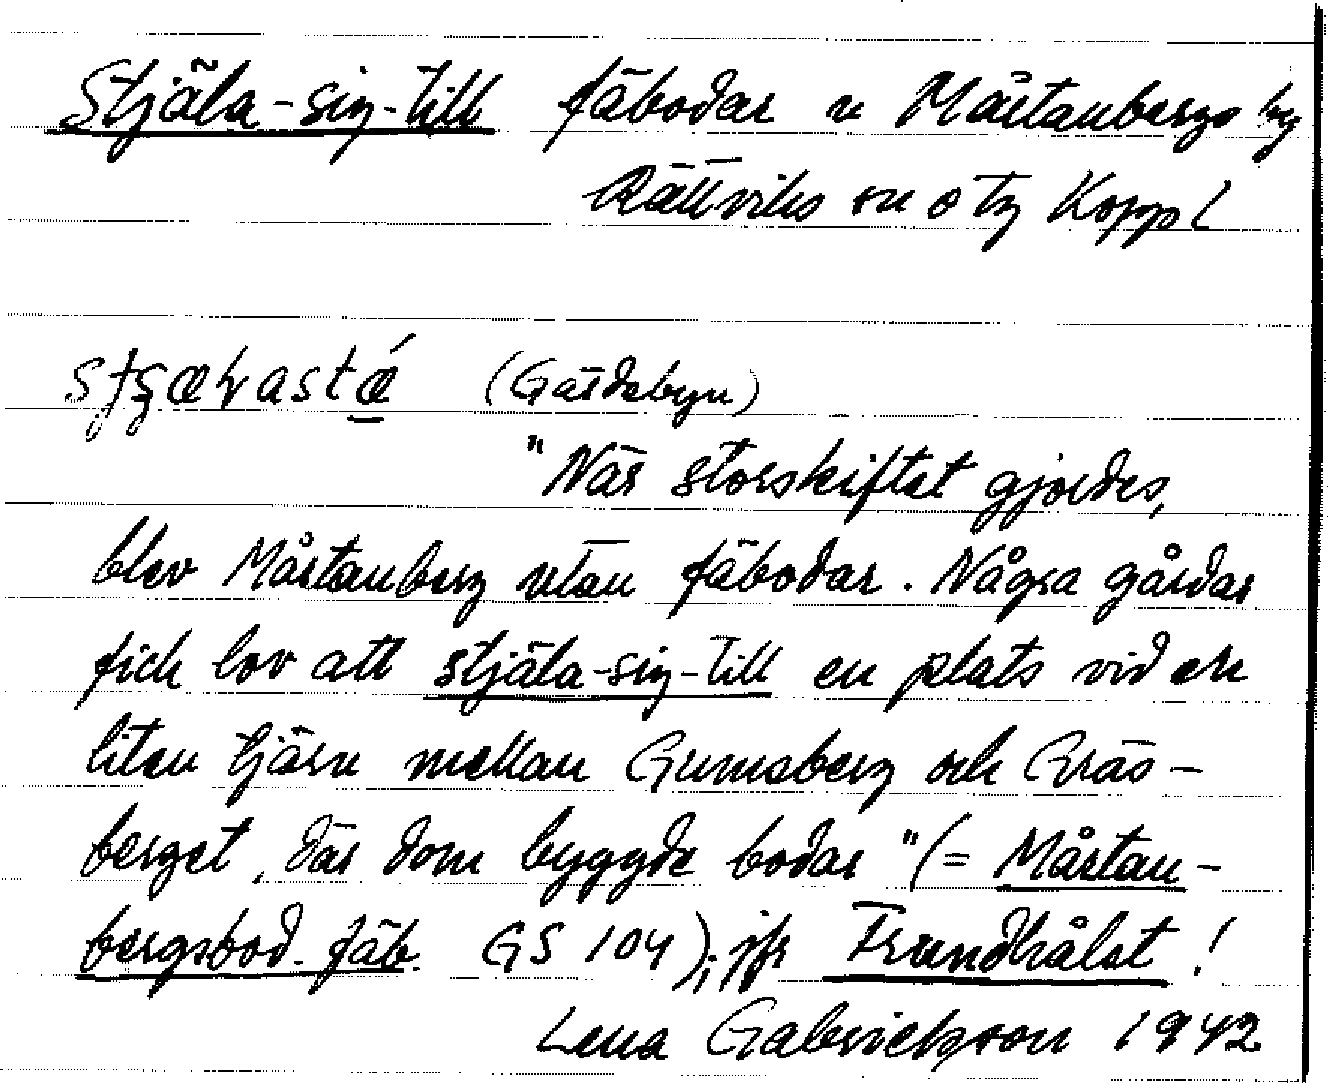 Stjäla-sig-till fäbodar u Mårtanbergs by
Rättviks sn o tg Koppl
(Gärdebyn)
"När storskiftet gjordes,
blev Mårtanberg utan fäbodar. Några gårdar
fick lov att stjäla-sig-till en plats vid en
liten tjärn mellan Gumsberg och Gräs-
berget, där dom byggde bodar" (= Mårtan-
bergsbod. fäb. GS 104); jfr Trundhålet!
Lena Gabrielsson 1942